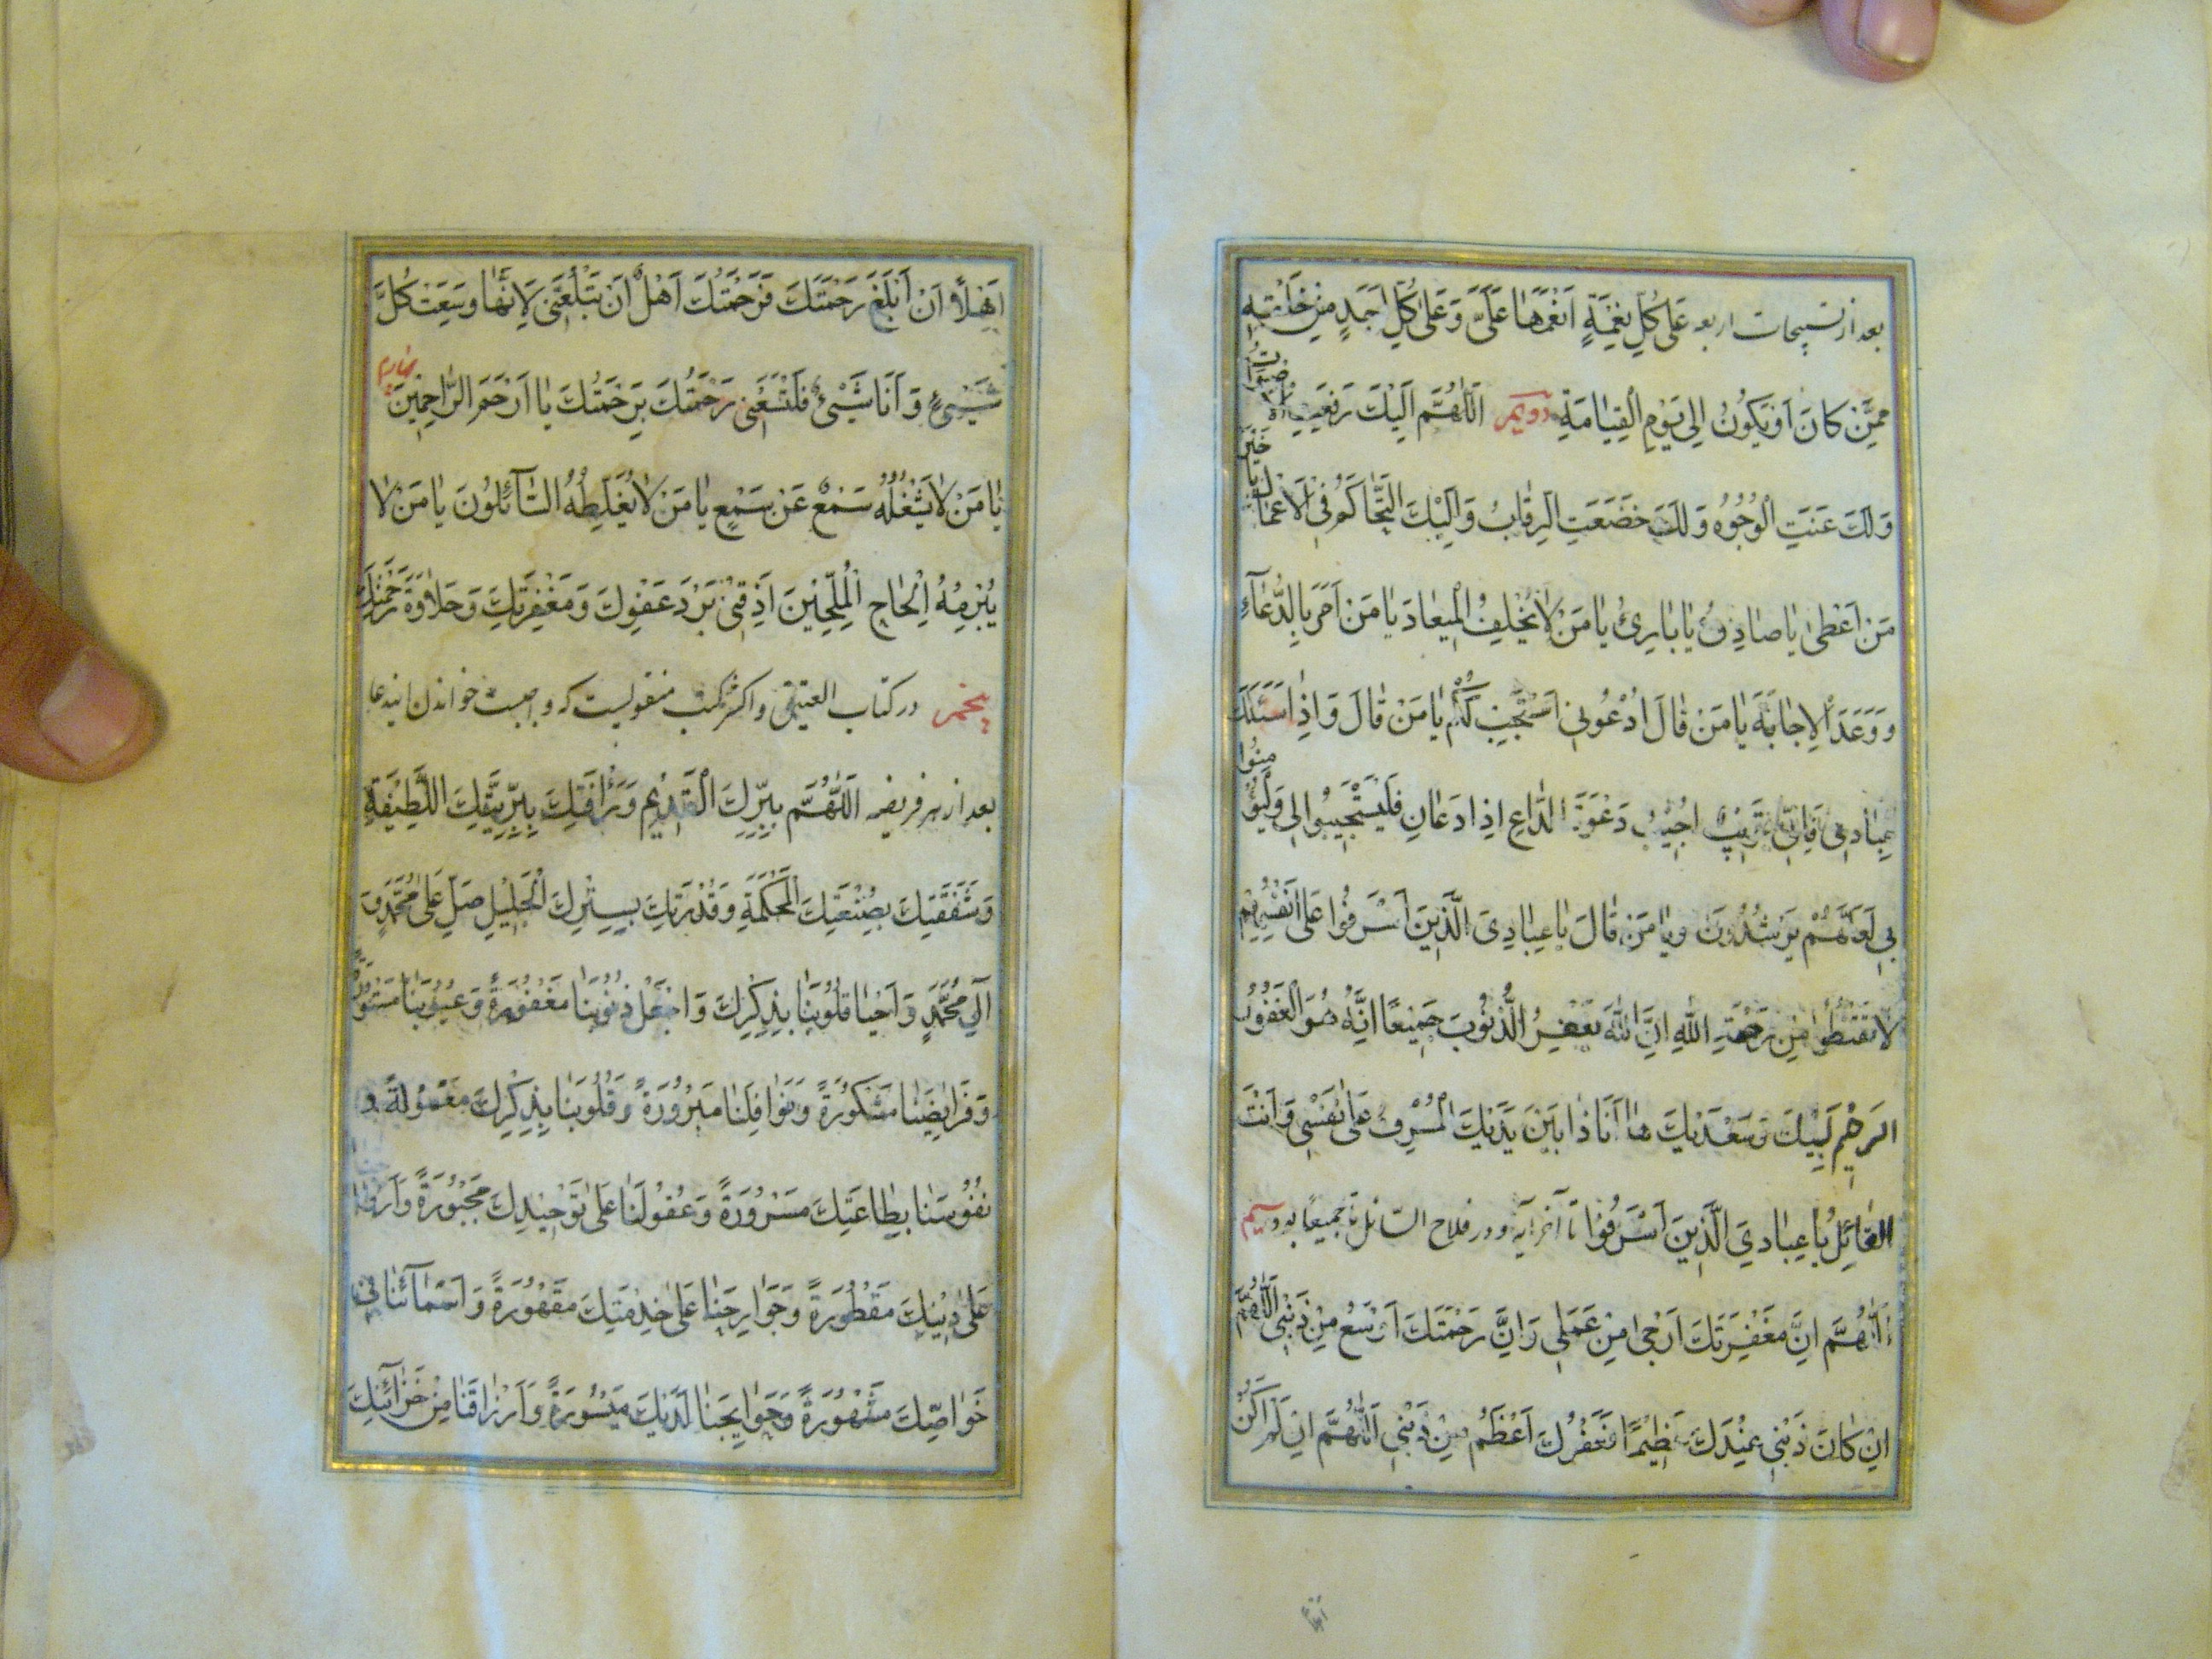 بعد از تسبیحات اربعه عَلى كُلِّ نِعْمَةٍ اَنْعَمَهٰا عَلَىَّ وَعَلىٰ كُلِّ اَحَدٍ مِنْ خَلْقِهِ
مِمَّنْ كانَ اَوْ يَكُونُ اِلى يَوْمِ الْقِيٰامَةِ دویم اَللّٰهُمَّ اِلَيْكَ رُفِعَتِ الْاَصْوٰاتُ
وَلَكَ عَنَتِ الْوُجُوهُ وَلَكَ خَضَعَتِ الرِقٰابُ وَاِلَيْكَ التَّحٰاكُمُ فِى الْاَعْمٰالِ يٰا خَيْرَ
مَنْ اَعْطىٰ يٰا صٰادِقُ يٰا بٰارِئُ يٰا مَنْ لاٰ يُخْلِفُ الْمِيعٰادَ يٰا مَنْ اَمَرَ بِالدُّعٰآءِ
وَوَعَدَ الْاِجٰابَةَ يٰا مَنْ قٰالَ ادْعُونِى اَسْتَجِبْ لَكُمْ يٰا مَنْ قٰالَ وَاِذٰا سَئَلَكَ
عِبٰادِى عَنّى فَاِنِّى قَرِيْبٌ اُجِيْبُ دَعْوَةَ الدّٰاعِ اِذٰا دَعٰانِ فَلْيَسْتَجِيبُوا لِى وَلْيُؤْمِنُوا
بِى لَعَلَّهُمْ يَرْشُدُونَ وَيٰا مَنْ قٰالَ يٰا عِبٰادِىَ الَّذِينَ اَسْرَفُوا عَلىٰ اَنْفُسِهِمْ
لاٰ تَقْنَطُوا مِنْ رَحْمَةِ اللّٰهِ اِنَّ اللّٰهَ يَغْفِرُ الذُّنُوبَ جَمِيْعًا اِنَّهُ هُوَ الْغَفُورُ
الرَّحِيْمُ لَبَّيْكَ وَسَعْدَيْكَ هٰا اَنَا ذٰا بَيْنَ يَدَيْكَ الْمُسْرِفُ عَلىٰ نَفْسِى وَاَنْتَ
الْقٰائِلُ يٰا عِبٰادِىَ الَّذِينَ اَسْرَفُوا تا آخر آیه و در فلاح السائل تا جمیعًا بود سیم
اَللّٰهُمَّ اِنَّ مَغْفِرَتَكَ اَرْجىٰ مِنْ عَمَلِى وَاِنَّ رَحْمَتَكَ اَوْسَعُ مِنْ ذَنْبِى اَللّٰهُمَّ
اِنْ كٰانَ ذَنْبِى عِنْدَكَ عَظِيْمًا فَعَفْوُكَ اَعْظَمُ مِنْ ذَنْبِى اَللّٰهُمَّ اِنْ لَمْ اَكُنْ
اَهْلاً اَنْ اَبْلُغَ رَحْمَتَكَ فَرَحْمَتُكَ اَهْلٌ اَنْ تَبْلُغَنِى لِاَنَّهٰا وَسِعَتْ كُلَّ
شَيْئٍ وَاَنَا شَيْئٌ فَلْتَسَعْنِى رَحْمَتُكَ بِرَحْمَتِكَ يٰا اَرْحَمَ الرّٰاحِمِينَ چهارم
يٰا مَنْ لاٰ يَشْغَلُهُ سَمْعٌ عَنْ سَمْعٍ يٰا مَنْ لاٰ يُغَلِّطُهُ السّٰآئِلُونَ يٰا مَنْ لاٰ
يُبْرِمُهُ اِلْحٰاحُ الْمُلِحِّيْنَ اَذِقْنِى بَرْدَ عَفْوِكَ وَمَغْفِرَتِكَ وَحَلاٰوَةَ رَحْمَتِكَ
پنجم در کتاب العتیقی و اکثر کتب منقولیست که واجبست خواندن ایندعا
بعد از هر فریضه اَللّٰهُمَّ بِبِرِّكَ الْقَدِيْمِ وَرَأْفَتِكَ بِبِرِّيَّتِكَ اللَّطِيْفَةِ
وَشَفَقَتِكَ بِصُنْعَتِكَ الْمُحْكَمَةِ وَقُدْرَتِكَ بِسِتْرِكَ الْجَلِيْلِ صَلِّ عَلىٰ مُحَمَّدٍ وَ
آلِ مُحَمَّدٍ وَاَحْيِ قُلُوبَنٰا بِذِكْرِكَ وَاجْعَلْ ذُنُوبَنٰا مَغْفُورَةً وَعُيُوبَنٰا مَسْتُورَةً
وَفَرٰايِضَنٰا مَشْكُورَةً وَنَوٰافِلَنٰا مَبْرُورَةً وَقُلُوبَنٰا بِذِكْرِكَ مَعْمُولَةً وَ
نُفُوسَنٰا بِطٰاعَتِكَ مَسْرُورَةً وَعُقُولَنٰا عَلىٰ تَوْحِيْدِكَ مَجْبُورَةً وَاَرْوٰاحَنٰا
عَلىٰ دِيْنِكَ مَفْطُورَةً وَجَوٰارِحَنٰا عَلىٰ خِدْمَتِكَ مَقْهُورَةً وَاَسْمٰآئَنٰا فِى
خَوٰاصِّكَ مَشْهُورَةً وَحَوٰايِجَنٰا لَدَيْكَ مَيْسُورَةً وَاَرْزٰاقَنٰا مِنْ خَزٰآئِنِكَ